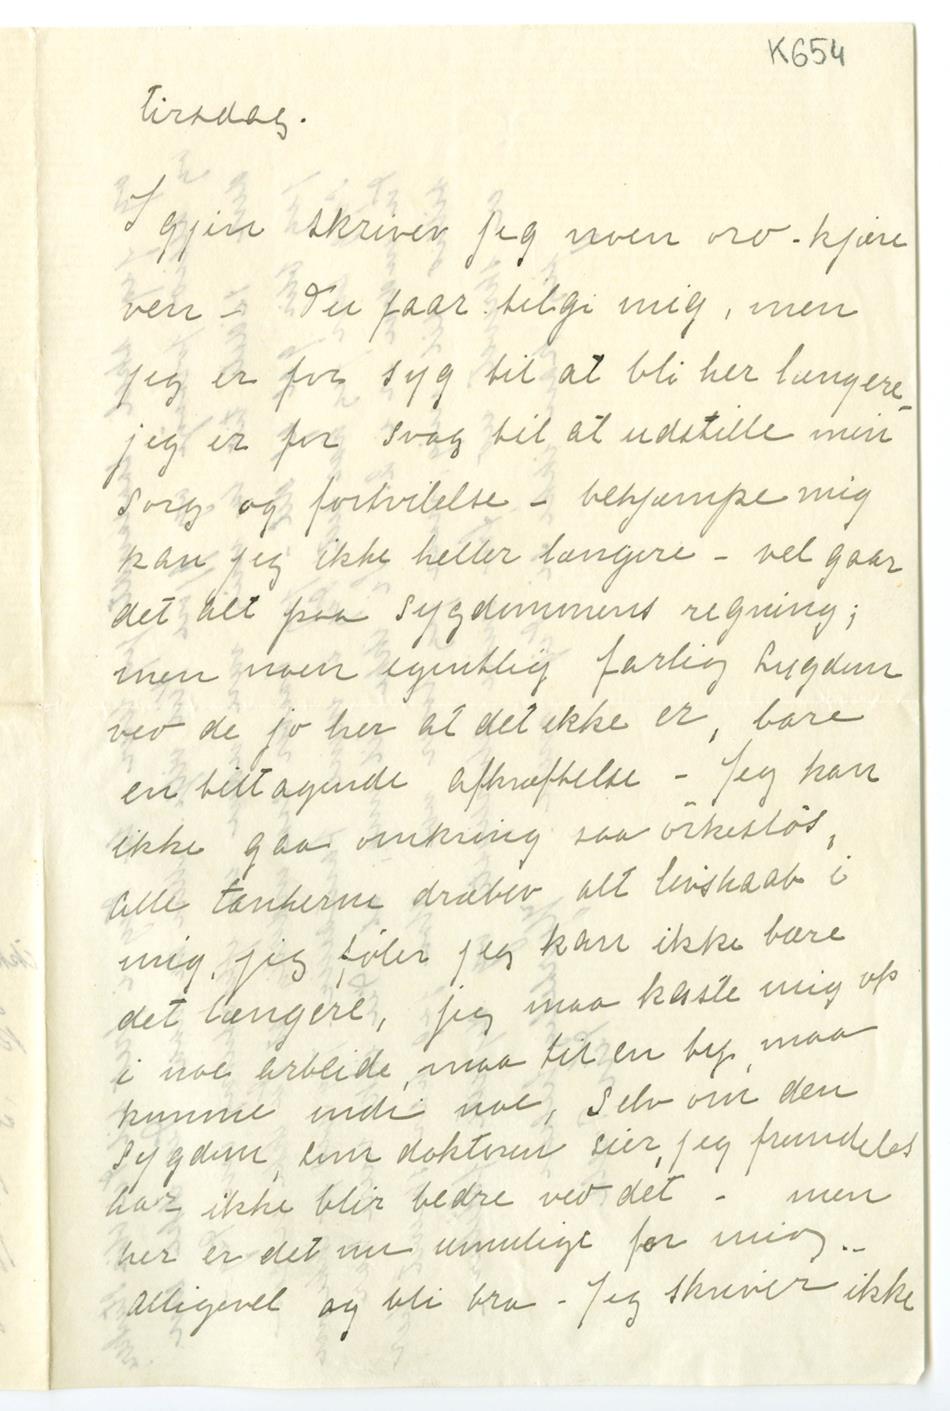 K654
Tirsdag.
Igjen skriver jeg noen ord - kjære
ven - Du faar tilgi mig, men
jeg er for syg til at bli her længere -
jeg er for svag til at udstille min
sorg og fortvilelse - bekjæmpe mig
kan jeg ikke heller længere - vel gaar
det alt paa sygdommens regning;
men noen egentlig farlig sygdom
ved de jo her at det ikke er, bare
en tiltagende afkræftelse - Jeg kan
ikke gaa omkring saa örkeslös,
alle tankerne dræber alt livshaab i
mig, jeg føler jeg kan ikke bære
det længere, jeg maa kaste mig op
i noe arbeide, maa til en by, maa
komme indi noe, selv om den
sygdom, som doktoren sier, jeg fremdeles
har ikke blir bedre ved det - men
her er det nu umulige for mig ..
alligevel og bli bra - Jeg skriver ikke